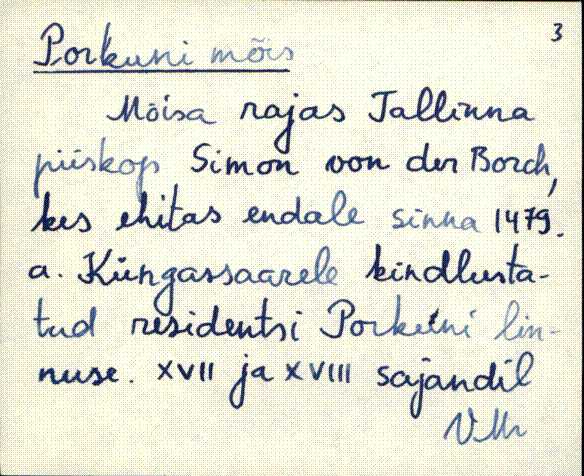 3
Porkuni mõis
Mõisa rajas Tallinna
piiskop Simon von der Borch,
kes ehitas endale sinna 1479.
a. Küngassaarele kindlusta-
tud residentsi Porkuni lin-
nuse. XVII ja XVIII sajandil